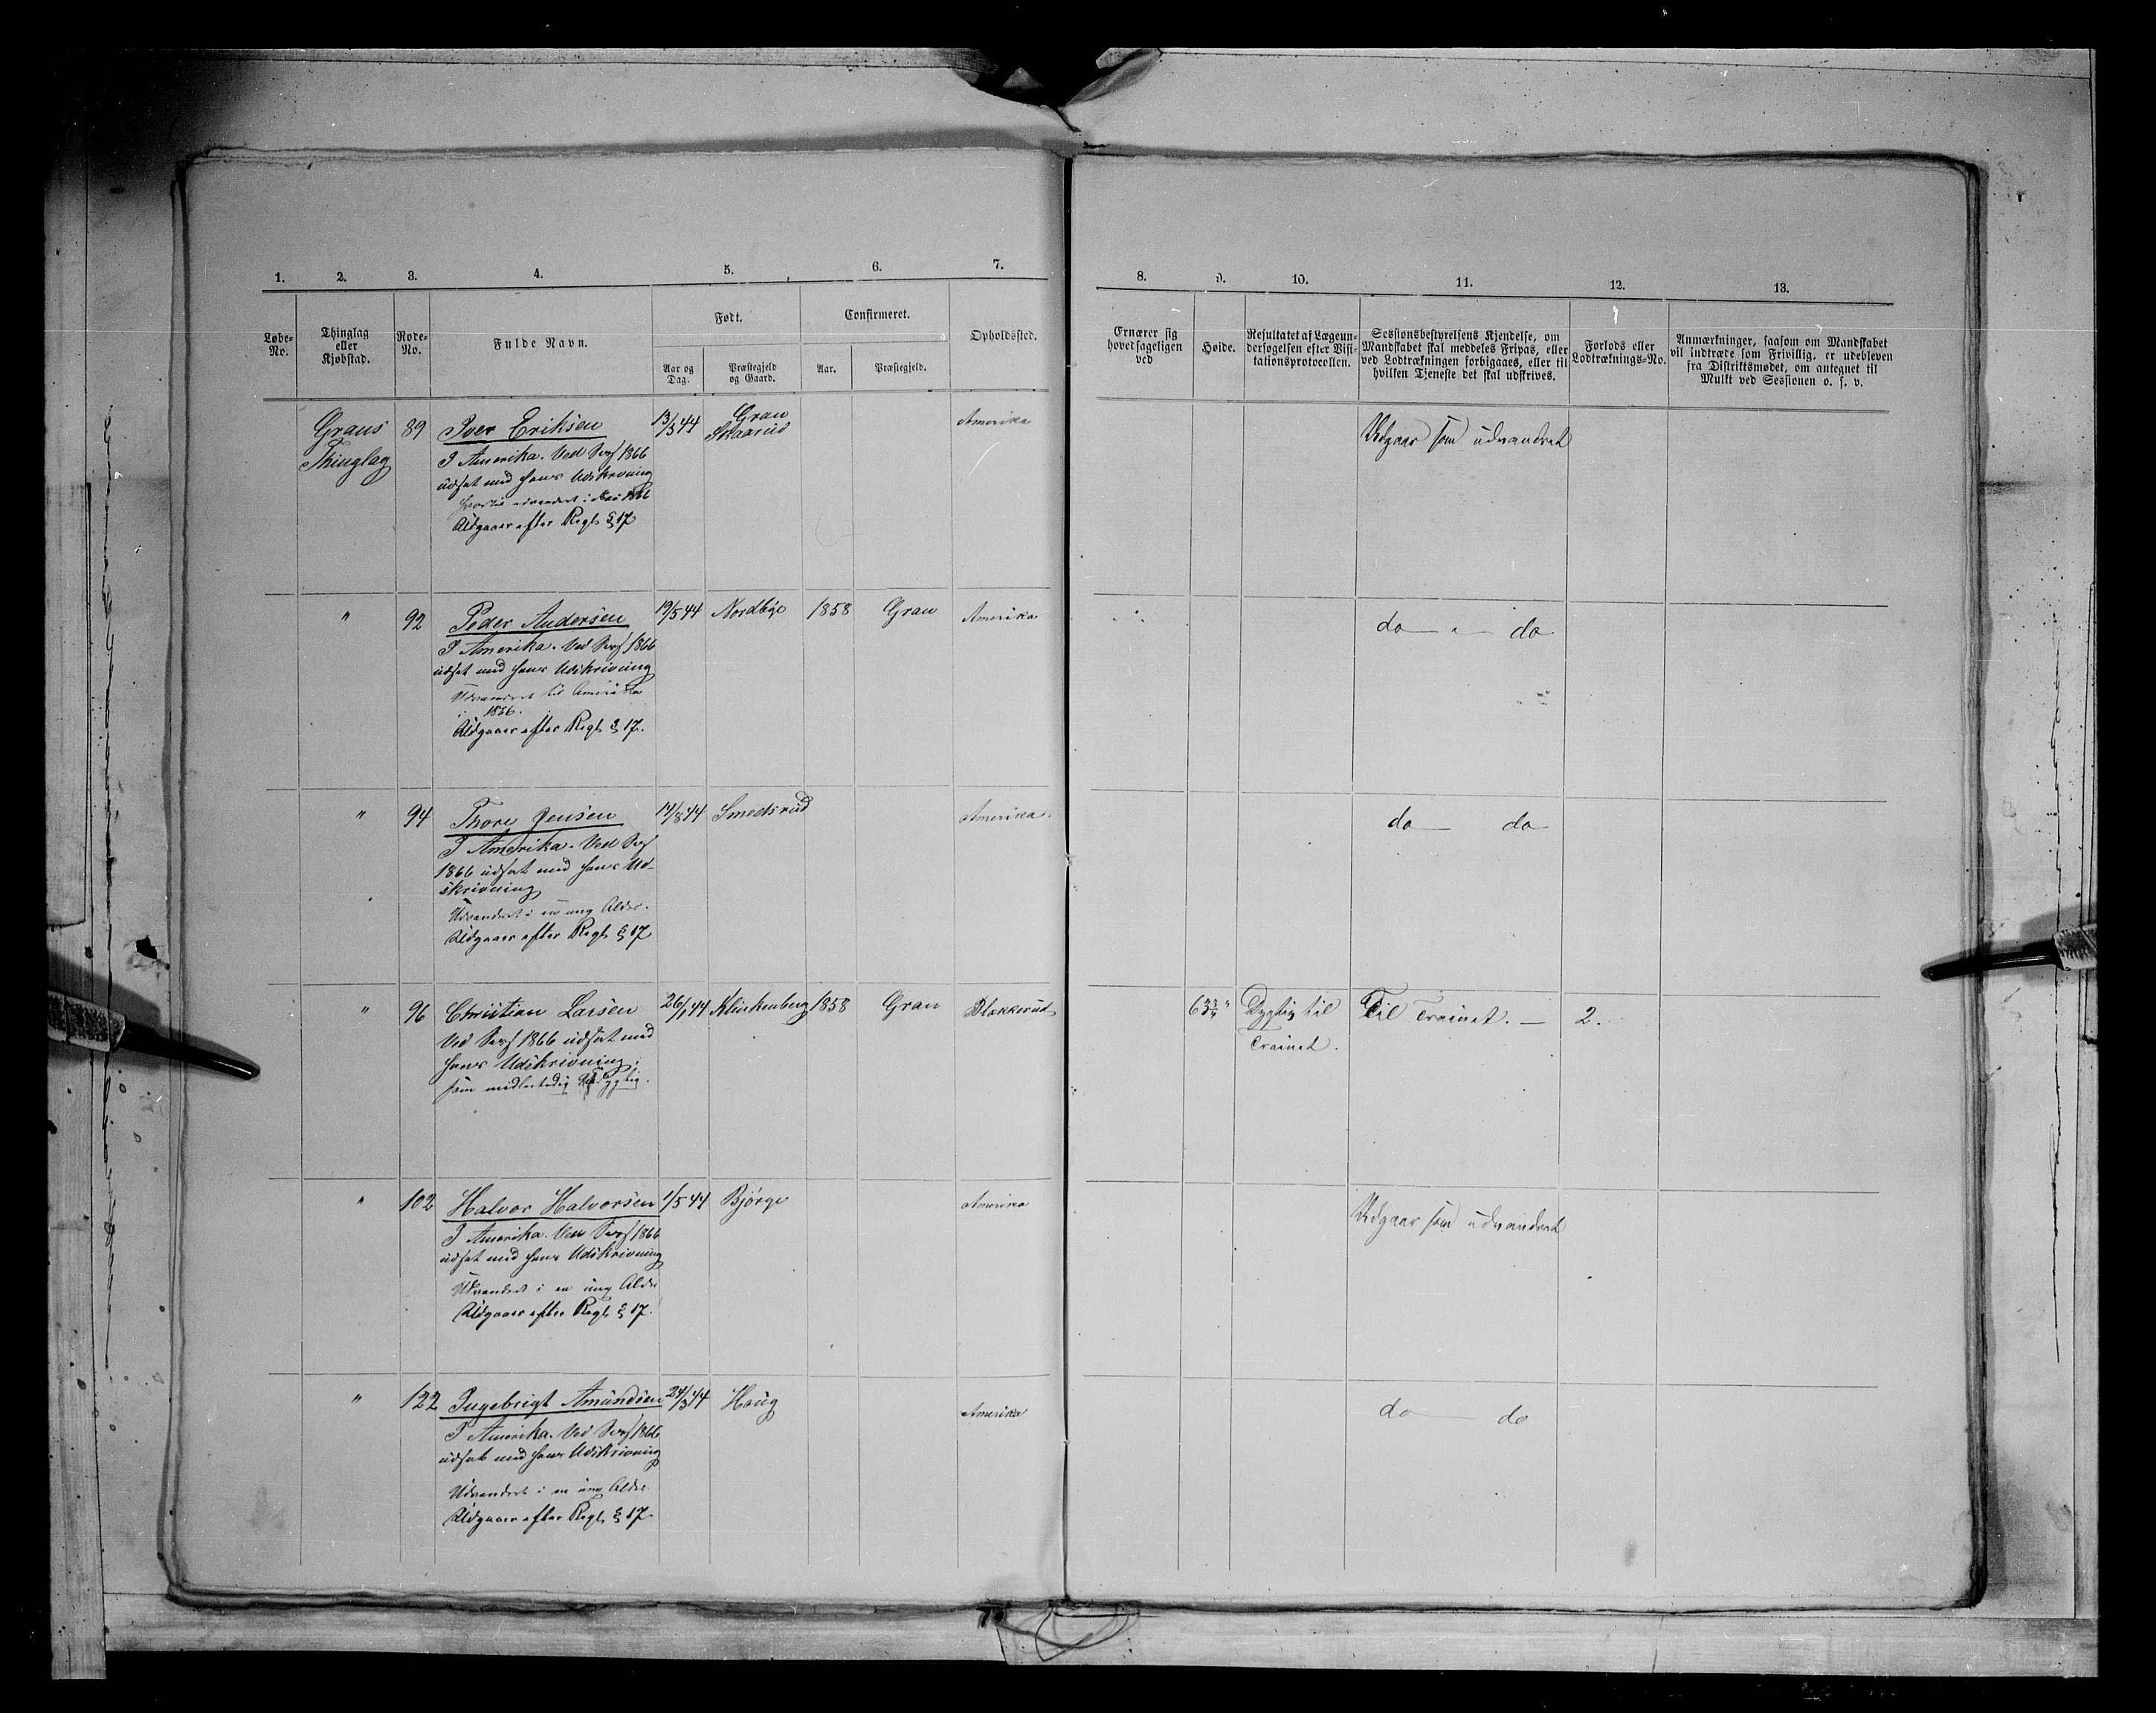 1. 2. 3. 4. 5. 6. 7.
Løbe-No.
Thinglag eller Kjøbstad.
Rode-No.
Fulde Navn.
Født.
Aar og Dag.
Præstegjeld og Gaard.
Confirmeret.
Aar.
Præstegjeld.
Opholdssted.
8. 9. 10. 11. 12. 13.
Ernærer sig hovedsageligen ved
Høide.
Resultatet af Lægeundersøgelsen efter Visitationsprotocollen.
Sessionsbestyrelsens Kjendelse, om Mandskabet skal meddeles Fripas, eller ved Lodtrækningen forbigaaes, eller til hvilken Tjeneste det skal udskrives.
Forlods eller Lodtræknings-No.
Anmærkninger, saasom om Mandskabet vil indtræde som Frivillig, er udebleven fra Distriktsmødet, om antegnet til Mulkt ved Sessionen o. s. v.
Grans Thinglag 89 Iver Eriksen 13/3 44 Gran Skaarud Amerika Udgaar som udvandret
I Amerika. Ved Sess 1866
udsat med hans Udskrivning
udvandret i 1866
Udgaar efter Regl. § 17
" 92 Peder Andersen 19/5 44 Nordbye 1858 Gran Amerika do do
I Amerika. Ved Sess 1866
udsat med hans Udskrivning
Udvandret til Amerika
i 1856.
Udgaar efter Regl. § 17.
" 94 Thore Jensen 14/8 44 Smedsrud Amerika do do
I Amerika. Ved Sess
1866 udsat med hans Ud-
skrivning
Udvandret i en ung Alder.
Udgaar efter Regl. § 17
" 96 Christian Larsen 26/1 44 Klinkenberg 1858 Gran Blakkerud 63 3/4" Dygtig til Trainet. Til Trainet. — 2.
Ved Sess 1866 udsat med
hans Udskrivning,
som midlertidig Udygtig.
" 102 Halvor Halvorsen 1/5 44 Bjørge Amerika Udgaar som udvandret
I Amerika. Ved Sess 1866
udsat med hans Udskrivning
Udvandret i en ung Alder
Udgaar efter Regl. § 17.
" 122 Ingebrigt Amundsen 24/3 44 Haug Amerika do do
I Amerika. Ved Sess 1866
udsat med hans Udskrivning
Udvandret i en ung Alder
Udgaar efter Regl. § 17.